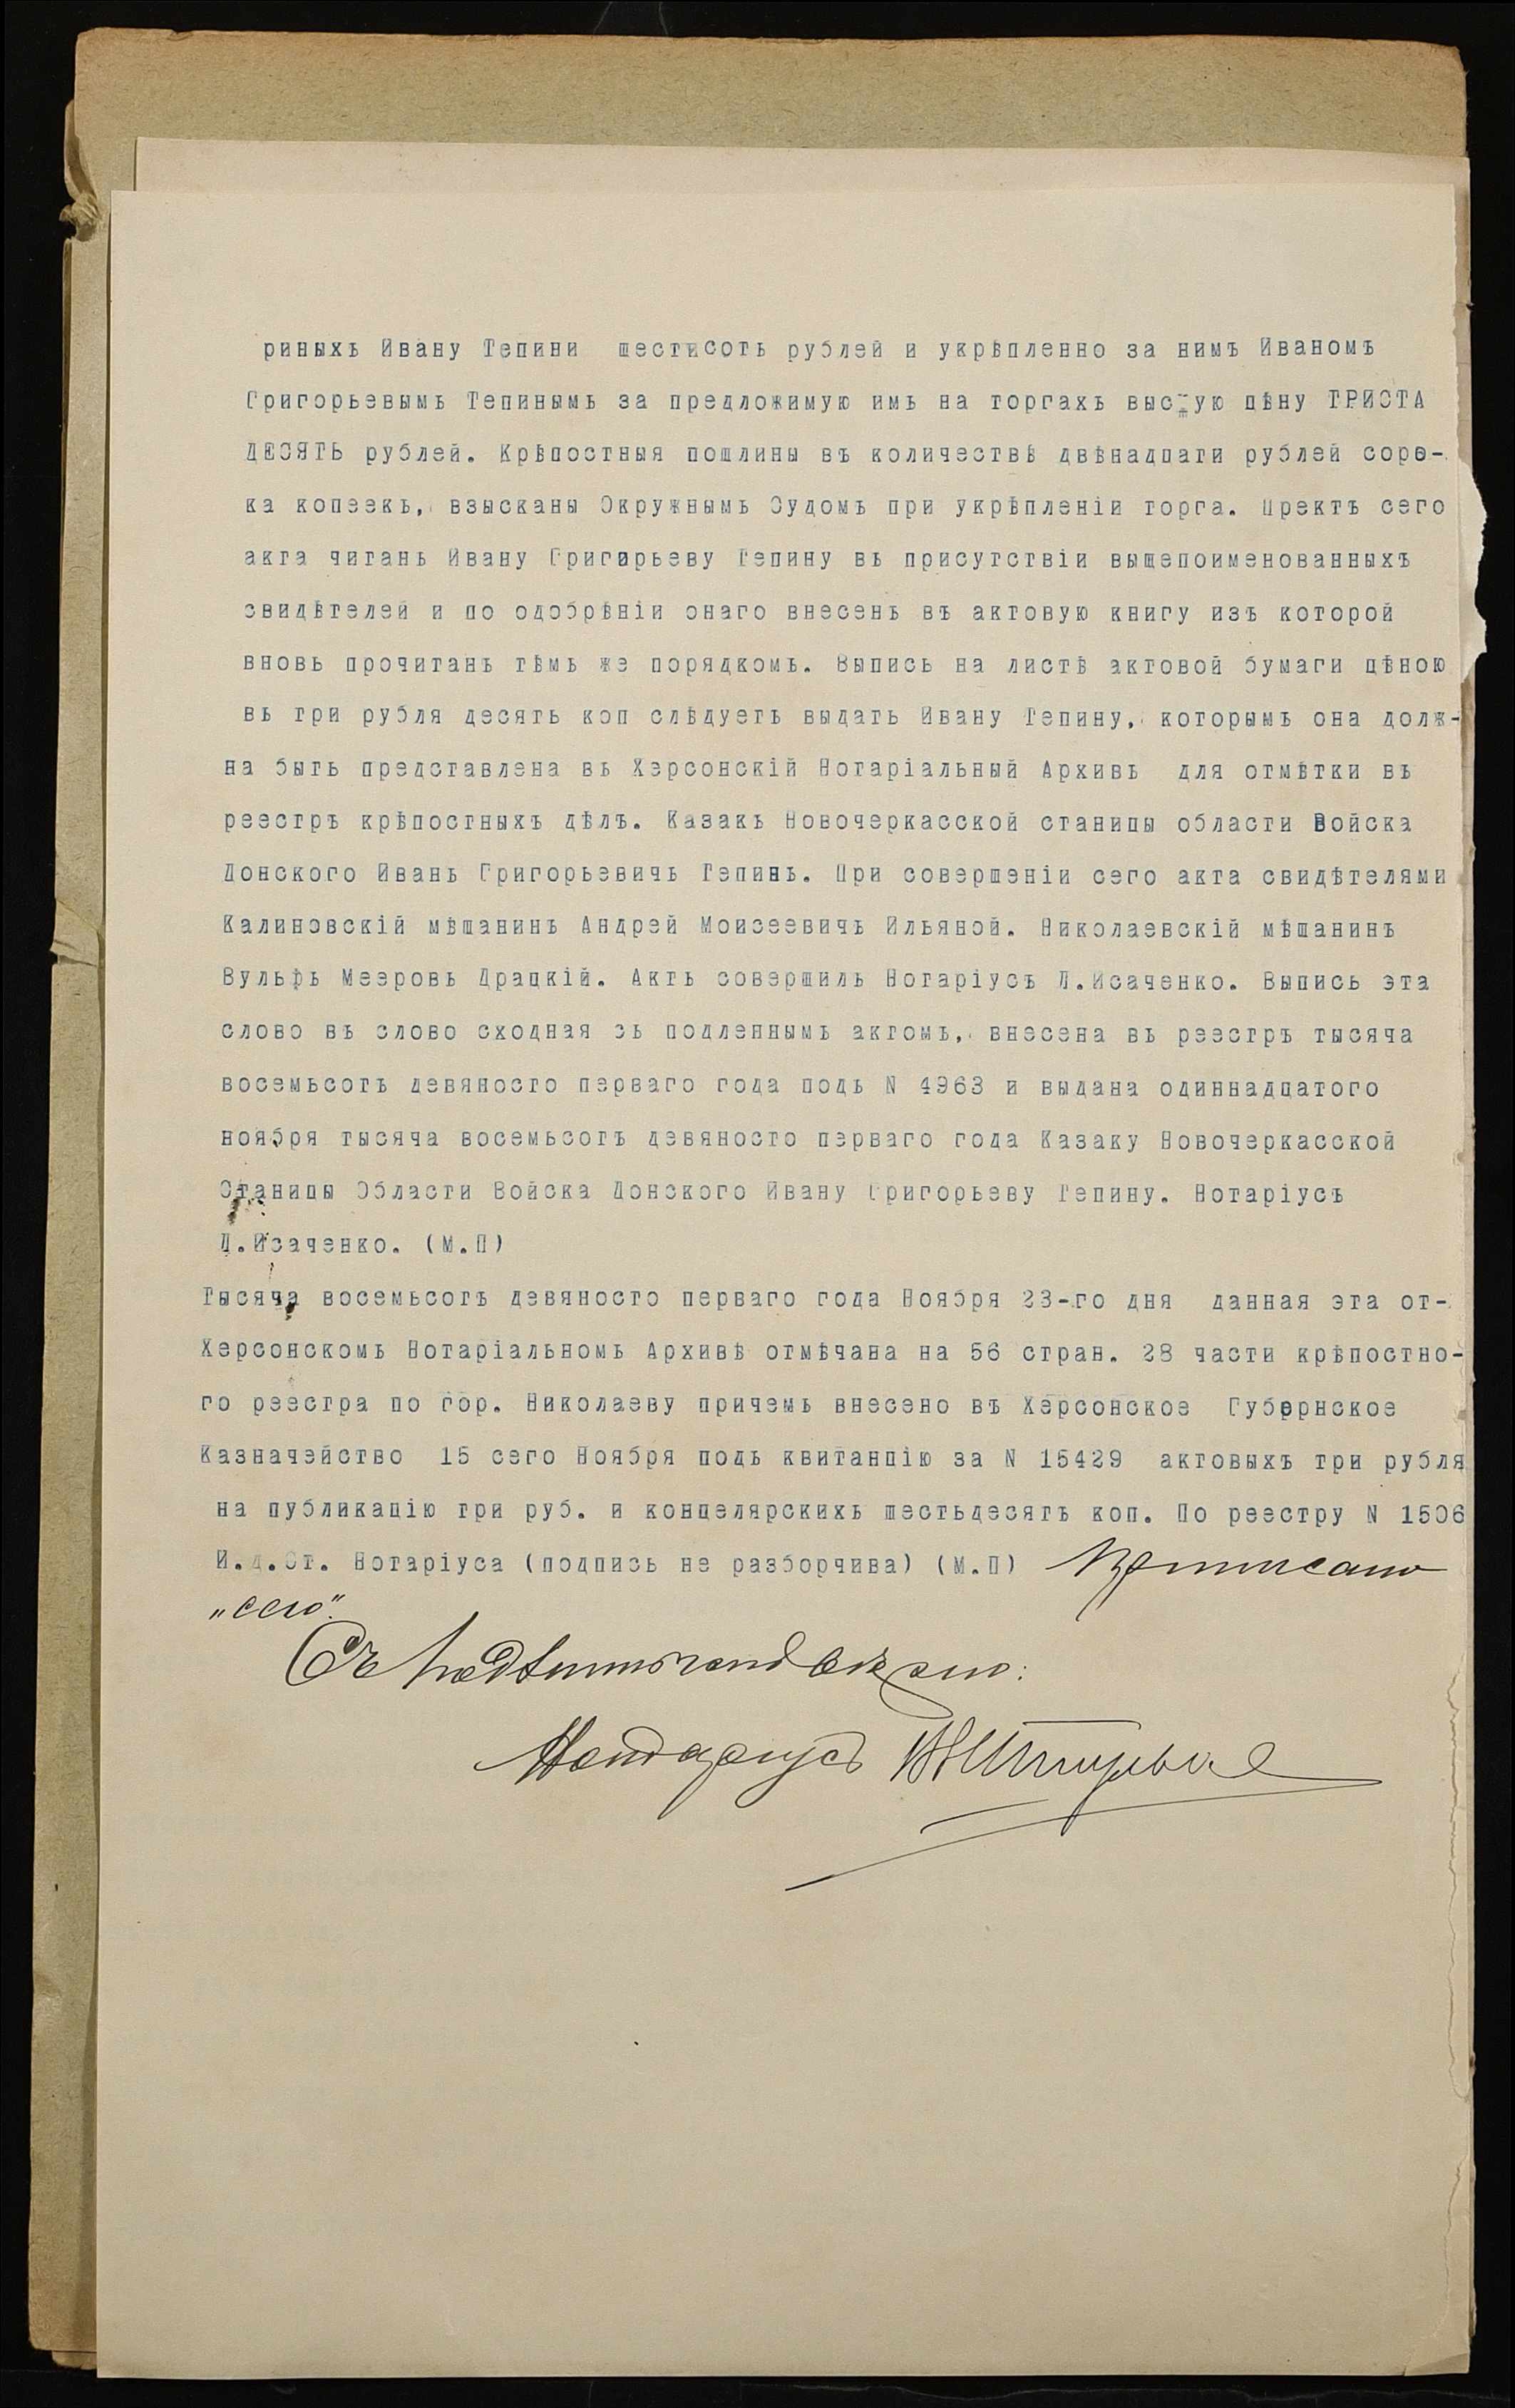 риныхъ Ивану Тепини шестисотъ рублей и укрѣпленно за нимъ Иваномъ
Григорьевымъ Тепинымъ за предложимую имъ на торгахъ высшую цѣну ТРИСТА
ДЕСЯТЬ рублей. Крѣпостныя пошлины въ количествѣ двѣнадцати рублей соро-
ка копеекъ, взысканы Окружнымъ Судомъ при укрѣпленіи торга. Пректъ сего
акта читанъ Ивану Григорьеву Тепину въ присутствіи вышепоименованныхъ
свидѣтелей и по одобрѣніи онаго внесенъ въ актовую книгу изъ которой
вновь прочитанъ тѣмъ же порядкомъ. Выпись на листѣ актовой бумаги цѣною
въ три рубля десять коп слѣдуетъ выдать Ивану Тепину, которымъ она долж-
на быть представлена въ Херсонскій Нотаріальный Архивъ для отмѣтки въ
реестръ крѣпостныхъ дѣлъ. Казакъ Новочеркасской станицы области Войска
Донского Иванъ Григорьевичъ Тепинъ. При совершеніи сего акта свидѣтелями
Калиновскій мѣщанинъ Андрей Моисеевичъ Ильяной. Николаевскій мѣщанинъ
Вульфъ Мееровъ Драцкій. Актъ совершилъ Нотаріусъ Д.Исаченко. Выпись эта
слово въ слово сходная съ подленнымъ актомъ, внесена въ реестръ тысяча
восемьсотъ девяносто перваго года подъ N 4963 и выдана одиннадцатого
ноября тысяча восемьсотъ девяносто перваго года Казаку Новочеркасской
Станицы Области Войска Донского Ивану Григорьеву Тепину. Нотаріусъ
Д.Исаченко. (М.П)
Тысяча восемьсотъ девяносто перваго года Ноября 23-го дня данная эта от-
Херсонскомъ Нотаріальномъ Архивѣ отмѣчана на 56 стран. 28 части крѣпостно-
го реестра по гор. Николаеву причемъ внесено въ Херсонское Губернское
Казначейство 15 сего Ноября подъ квитанцію за N 15429 актовыхъ три рубля
на публикацію три руб. и концелярскихъ шестьдесятъ коп. По реестру N 1506
И.д.Ст. Нотаріуса (подпись не разборчива) (М.П) Приписано
„сего".
Съ подлиннымъ вѣрно:
Нотаріусъ